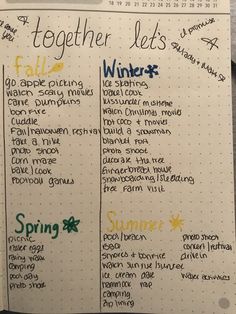 18 19 20 21 22 23 24 25 26 27 28 29 30 31
i promise
love you
together let's
Fall
go apple picking
watch scary movies
carve pumpkins
bon fire
Cuddle
Fall/halloween festival
take a hike
photo shoot
corn maze
bake/cook
football games
Winter
ice skating
bake/cook
kiss under mistletoe
watch Christmas movies
hot coco + movies
build a snowman
blanket fort
photo shoot
decorate the tree
gingerbread house
snowboarding/sledding
tree farm visit
Spring
picnic
easter eggs
rainy walk
camping
pool day
photo shoot
Summer
pool/beach
smores + bonfire
watch sunrise/sunset
ice cream date
hammock nap
camping
zip lining
photo shoot
concert/festival
drive in
water activities